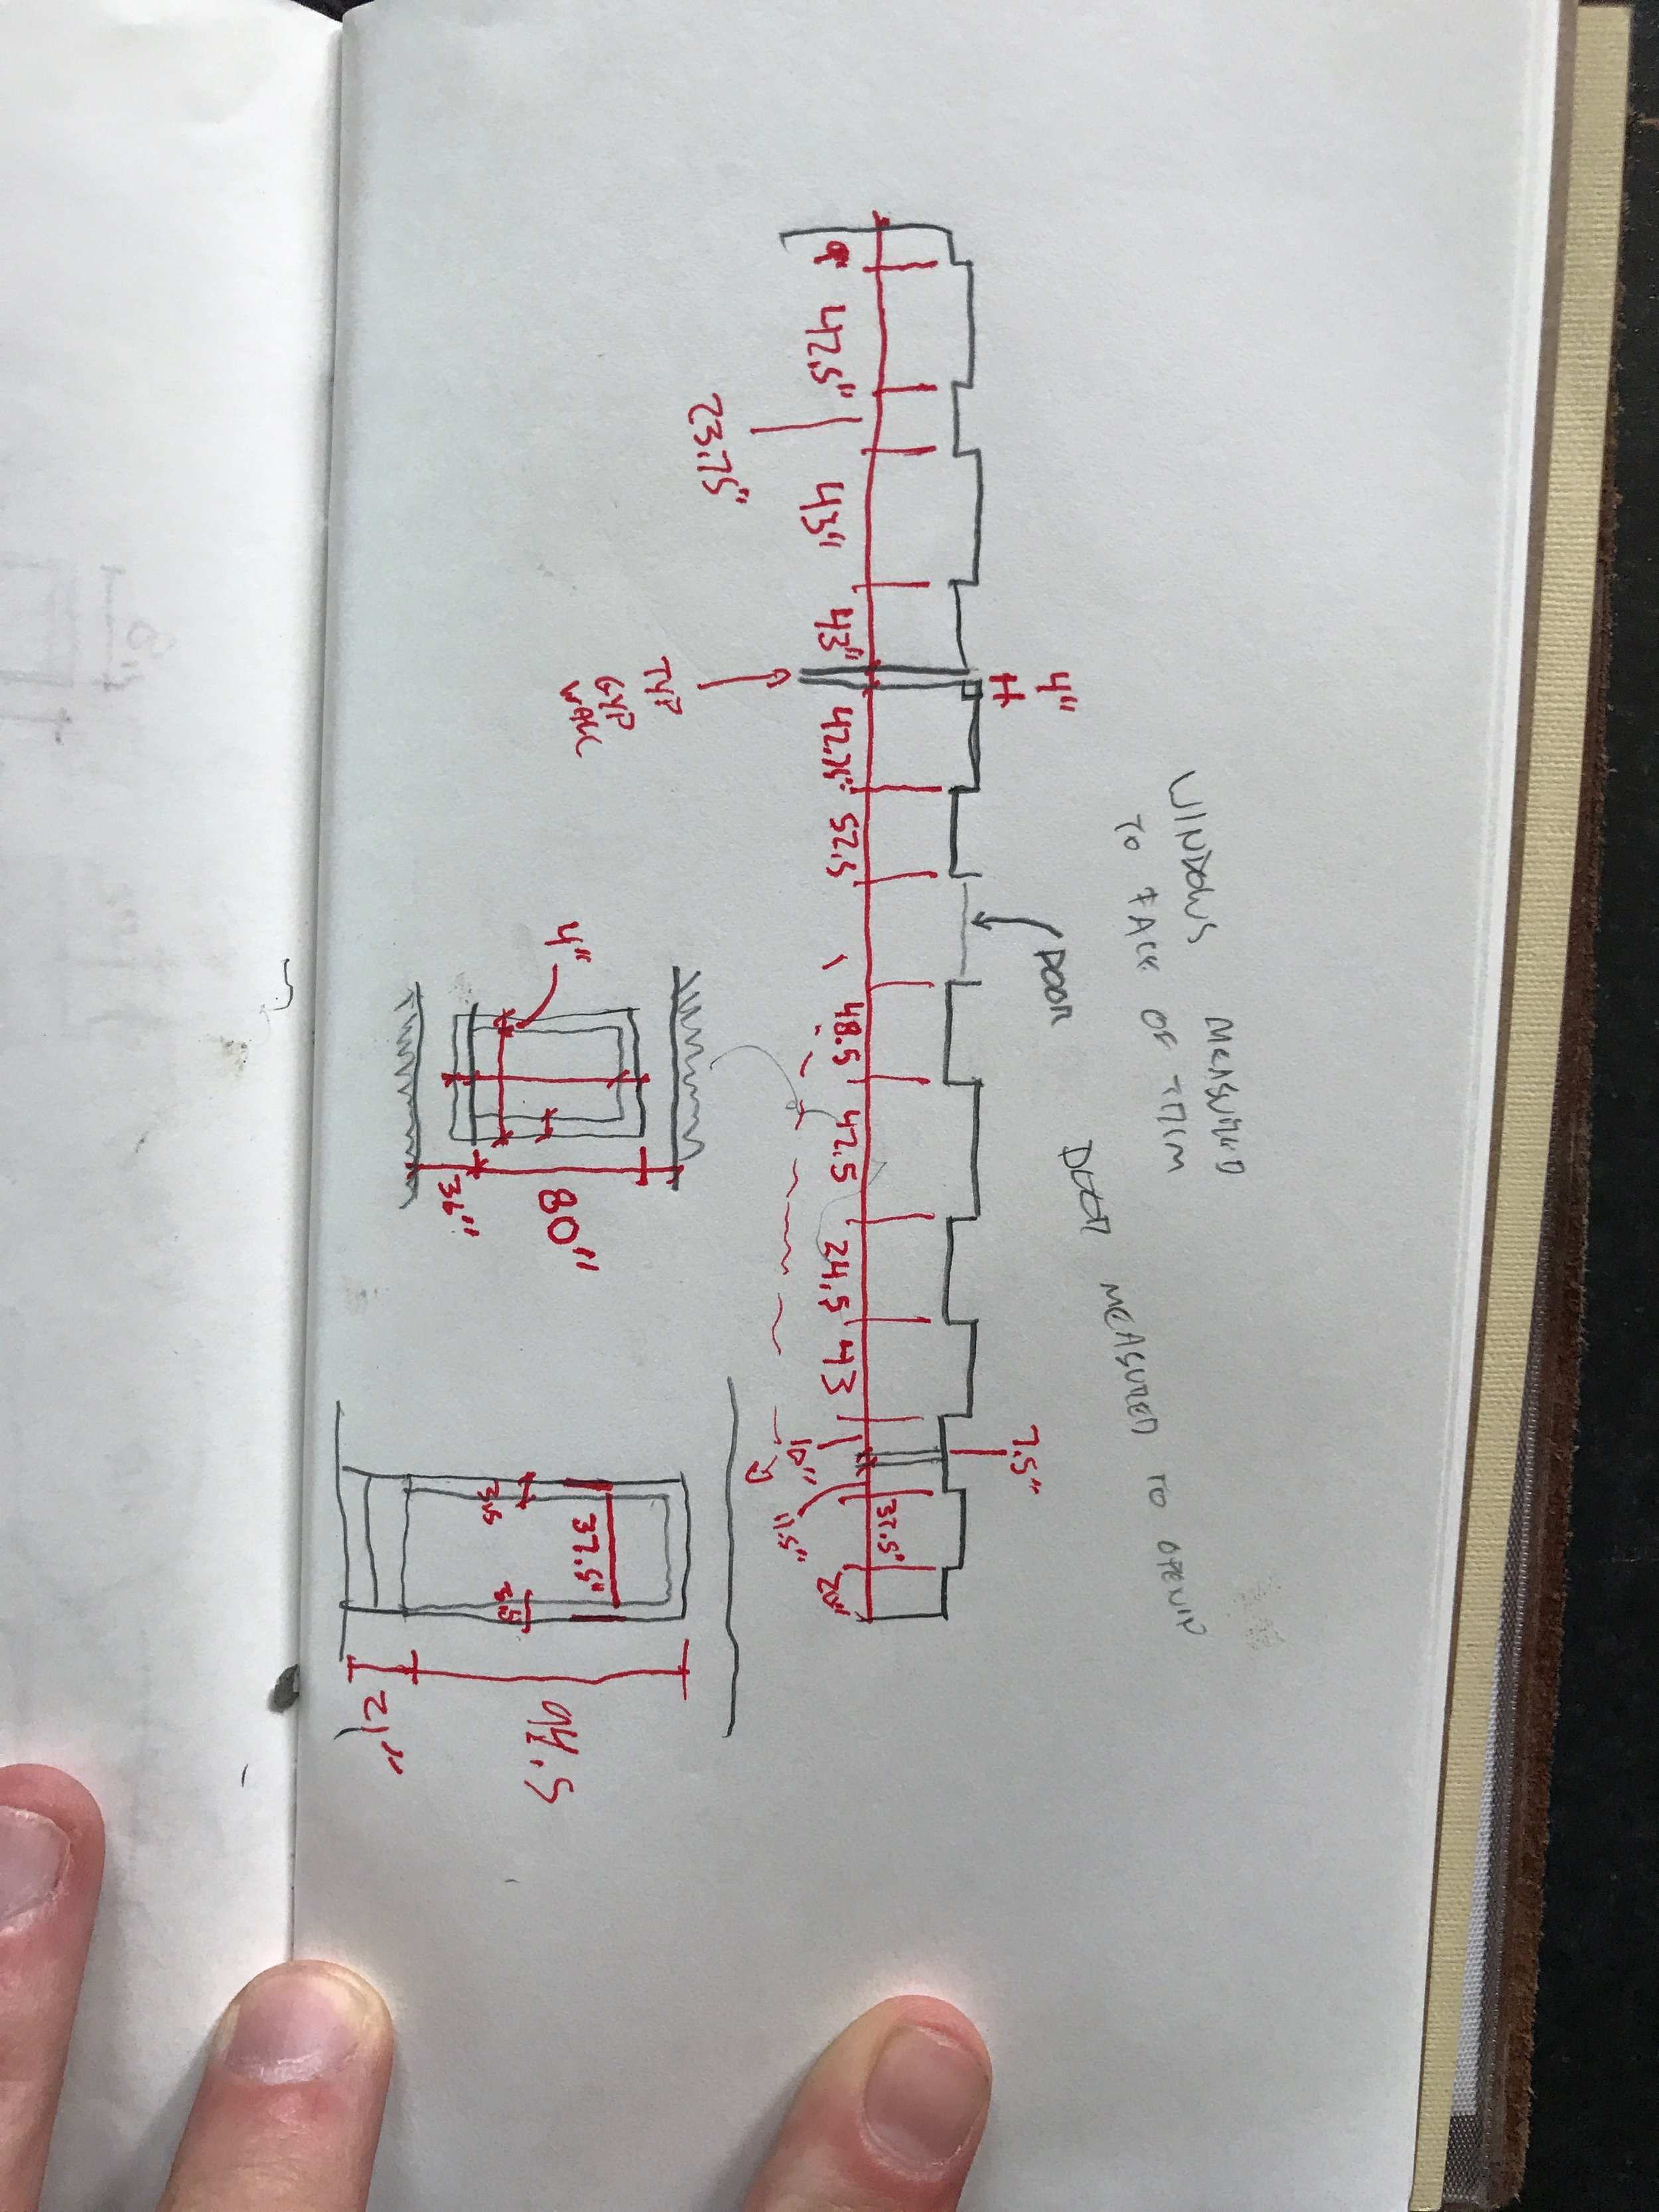 WINDOWS MEASURED
TO FACE OF TRIM
DOOR MEASURED TO OPENING
DOOR
4"
7.5"
42.5"
23.75"
43"
43"
42.75"
52.5
48.5
42.5
24.5
43
10"
11.5"
37.5"
20"
TYP
GYP
WALL
4"
36"
80"
3.5
37.5"
3.5
21"
94.5